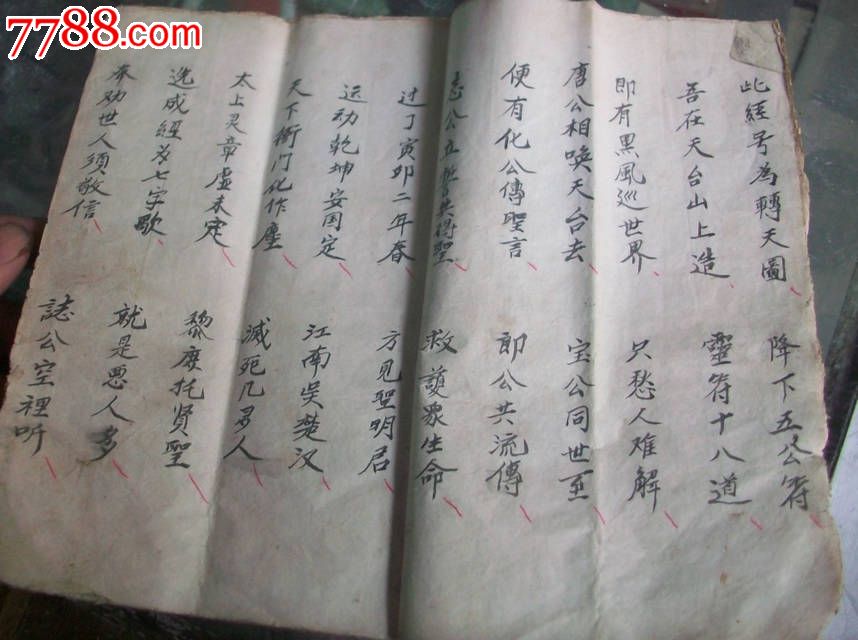 7788.com
此經号為轉天圖 降下五公符
吾在天台山上造 靈符十八道
即有黑風巡世界 只愁人难解
唐公相喚天台去 宝公同世至
便有化公傳聖言 郎公共流傳
志公立誓共得聖 救護眾生命
过了寅卯二年春 方見聖明君
运动乾坤安国定 江南吴楚汉
天下衙门化作塵 滅死几多人
太上灵章虚未定 黎庶托贤聖
选成經为七字歌 就是恶人多
奉劝世人须敬信 誌公空裡听